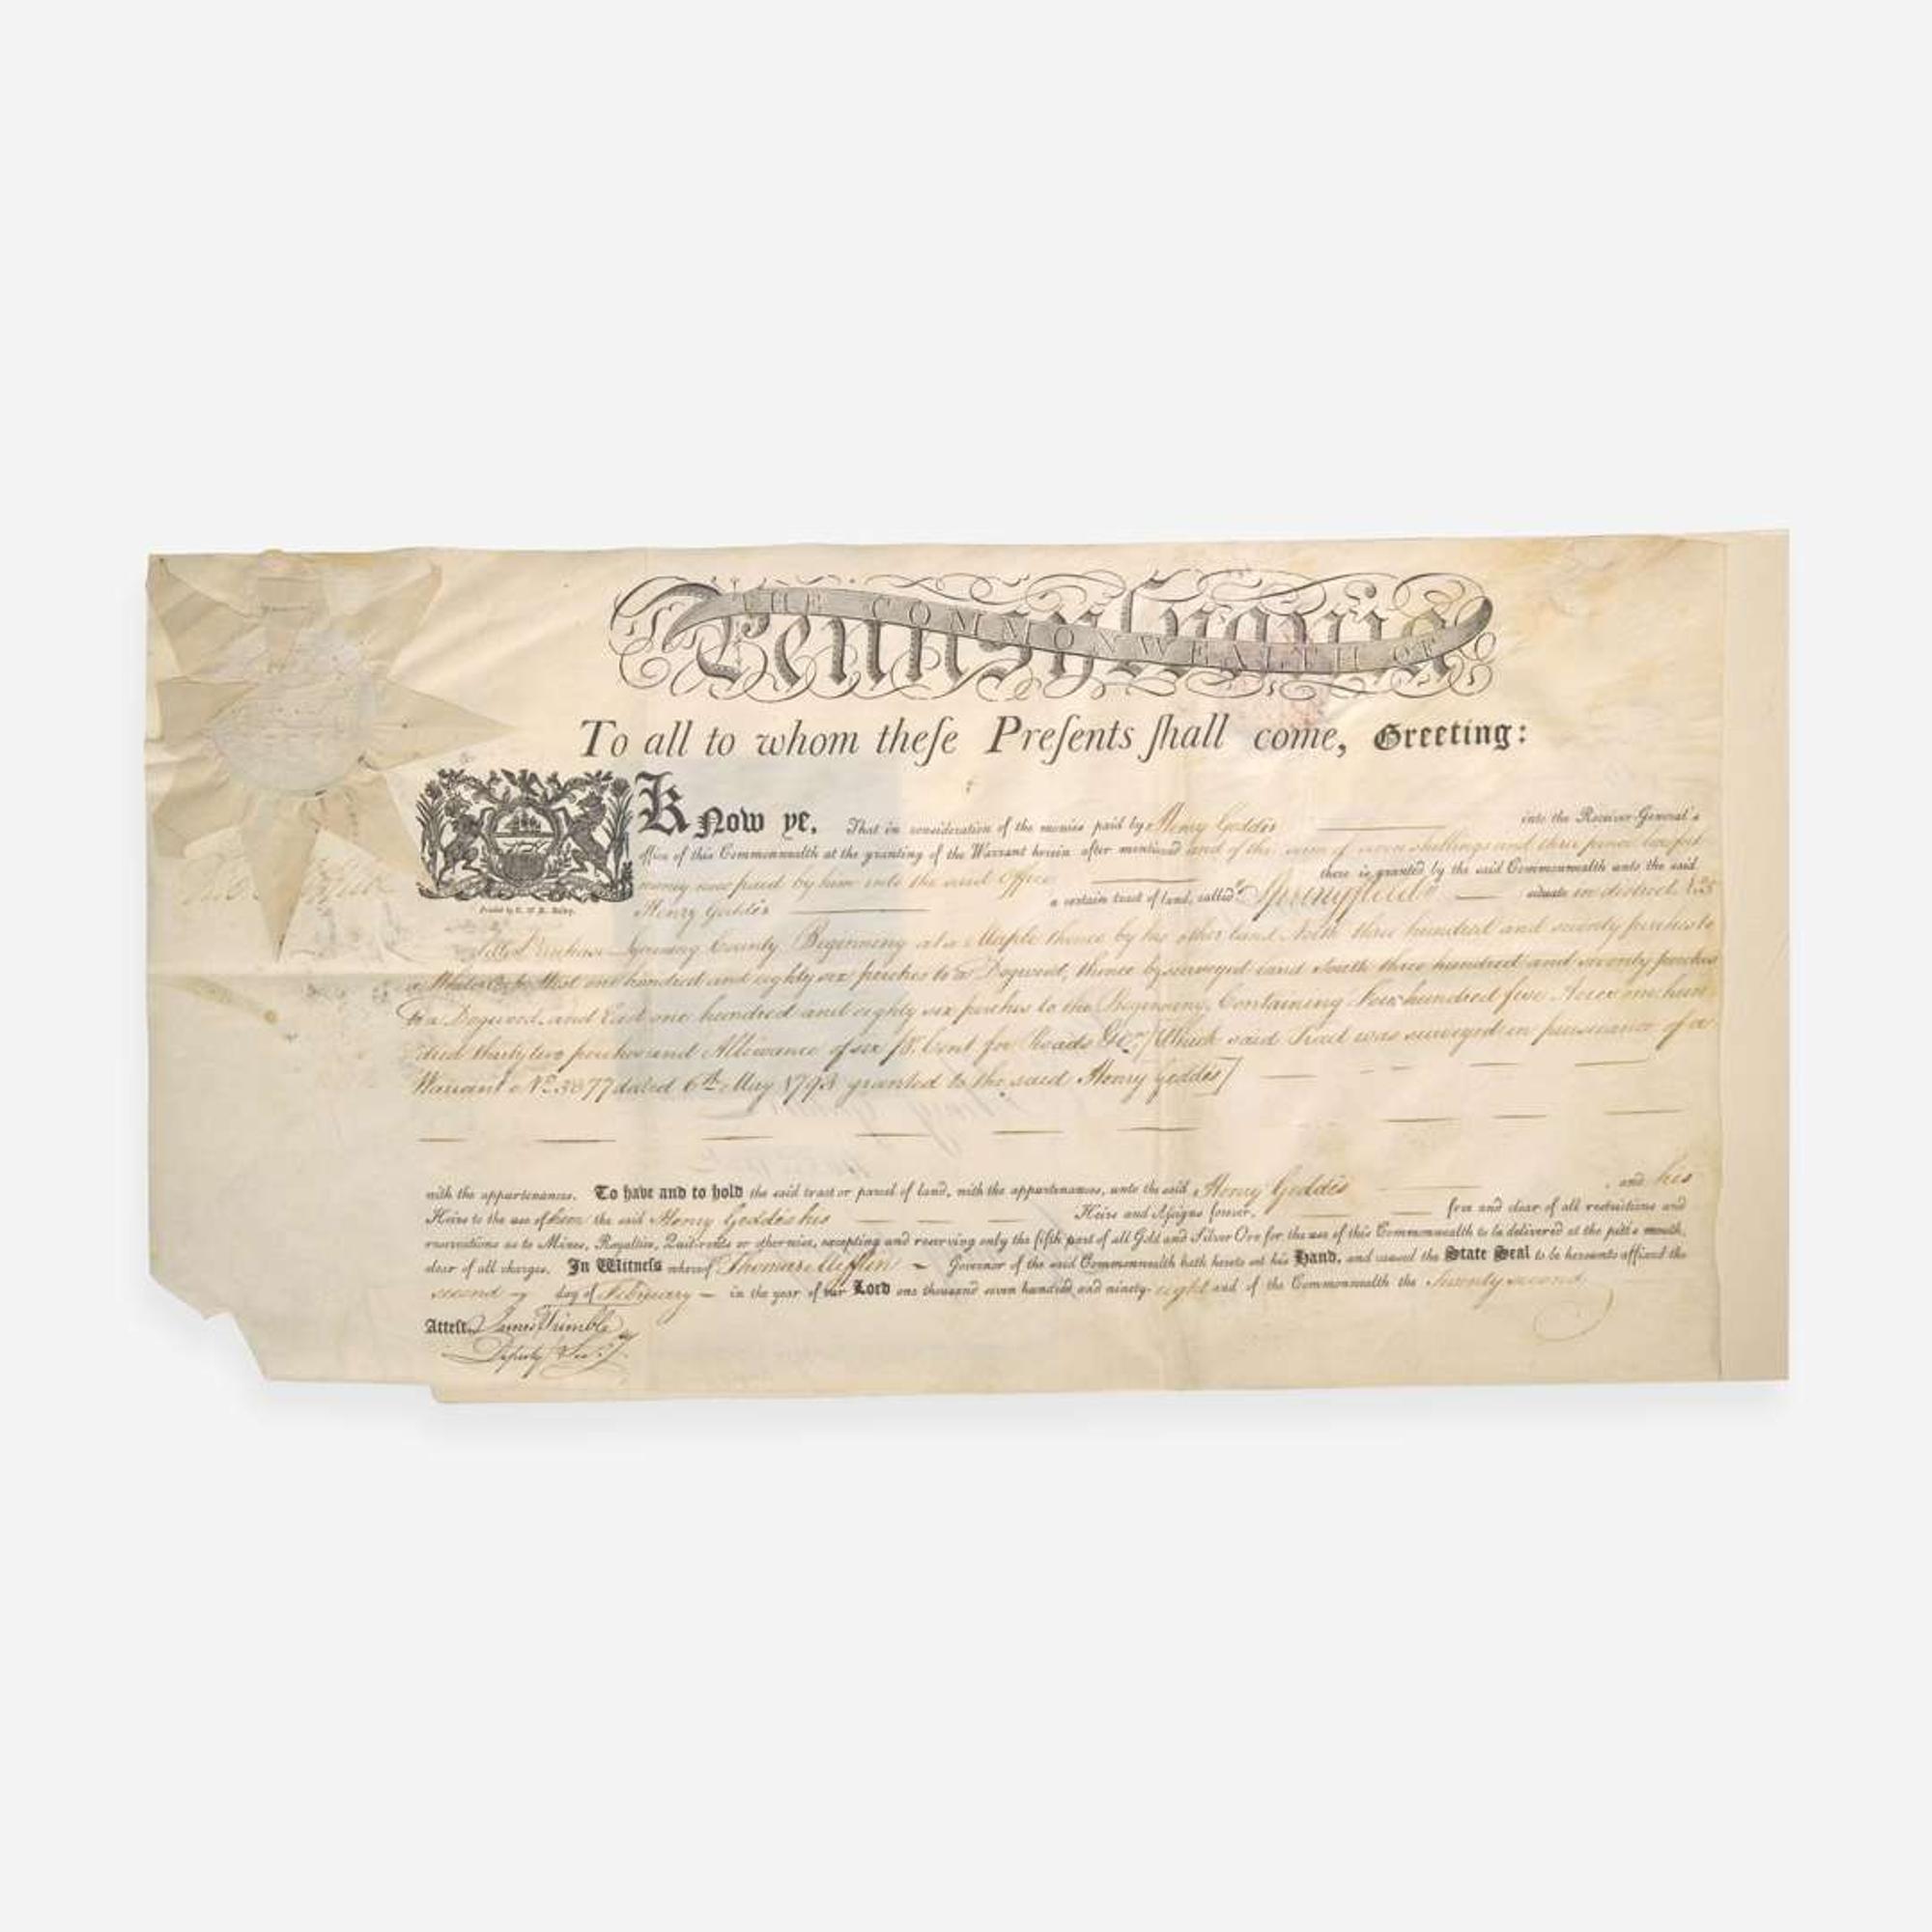 THE COMMONWEALTH OF
Pennsylvania
To all to whom theſe Preſents ſhall come, Greeting:
Know ye, That in consideration of the monies paid by Henry Geddis into the Receiver-General's
office of this Commonwealth at the granting of the Warrant herein after mentioned and of the sum of seven shillings and three pence
money now paid by him into the said Office there is granted by the said Commonwealth unto the said
Henry Geddis a certain tract of land, called "Springfield" situate in district
Printed by
Purchase Lycoming County Beginning at a Maple thence by his other land North three hundred and seventy perches to
a White Oak West one hundred and eighty six perches to a Dogwood, thence by surveyed land South three hundred and seventy perches
to a Dogwood, and East one hundred and eighty six perches to the Beginning, Containing Four hundred five Acres one hun-
dred thirty two perches and Allowance of six ⅌ Cent for Roads &c. [Which said Tract was surveyed in pursuance of a
Warrant No. 3077 dated 6th May 1793 granted to the said Henry Geddis]
with the appurtenances. To have and to hold the said tract or parcel of land, with the appurtenances, unto the said Henry Geddis and his
Heirs to the use of him the said Henry Geddis his Heirs and Aſsigns forever, free and clear of all restrictions and
reservations as to Mines, Royalties, Quit-rents or otherwise, excepting and reserving only the fifth part of all Gold and Silver Ore for the use of this Commonwealth to be delivered at the pitt's mouth,
clear of all charges. In Witneſs whereof Thomas Mifflin Governor of the said Commonwealth hath hereto set his Hand, and caused the State Seal to be hereunto affixed the
second day of February in the year of our Lord one thousand seven hundred and ninety-eight and of the Commonwealth the Twenty second
Atteſt. James Trimble
Deputy Secy.